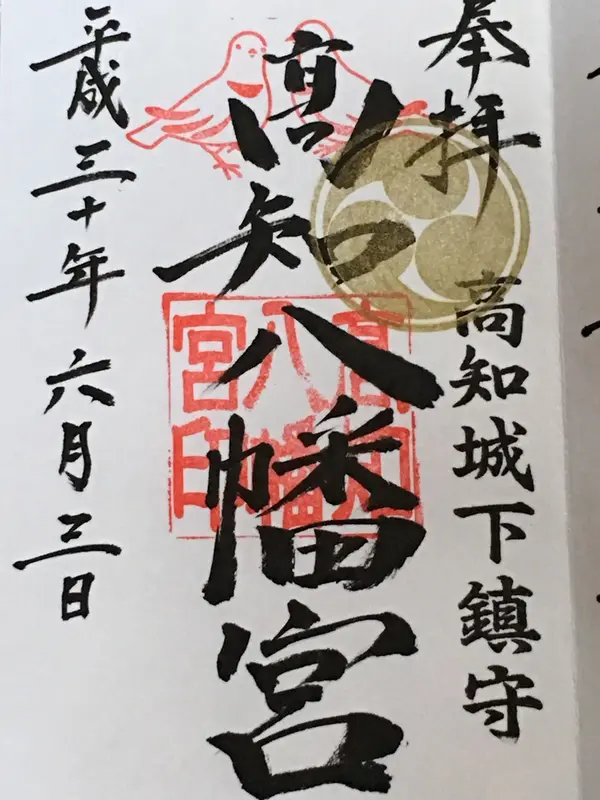 奉拝
高知城下鎮守
高知八幡宮
高知
八幡
宮印
平成三十年六月三日